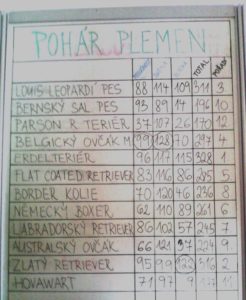 POHÁR PLEMEN
TOTAL POŘADÍ
LOUIS. LEOPARDÍ PES 88 114 109 311 3
BERNSKÝ SAL. PES 93 89 14 196 10
PARSON R. TERIÉR 37 107 26 170 12
BELGICKÝ OVČÁK M 99 128 70 297 4
ERDELTERIÉR 96 117 115 328 1
FLAT COATED RETRIEVER 83 116 86 285 5
BORDER KOLIE 70 120 46 236 8
NĚMECKÝ BOXER 62 110 89 261 6
LABRADORSKÝ RETRIEVER 86 102 57 245 7
AUSTRALSKÝ OVČÁK 66 121 37 224 9
ZLATÝ RETRIEVER 95 99 122 316 2
HOVAWART 71 97 9